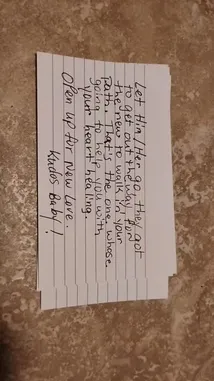 Let Him/Her go, they got
to get out the way for
the new to walk in your
path. That's the one, whose
going to help you with
your heart healing.
Open up for New Love.
Kudos Baby!